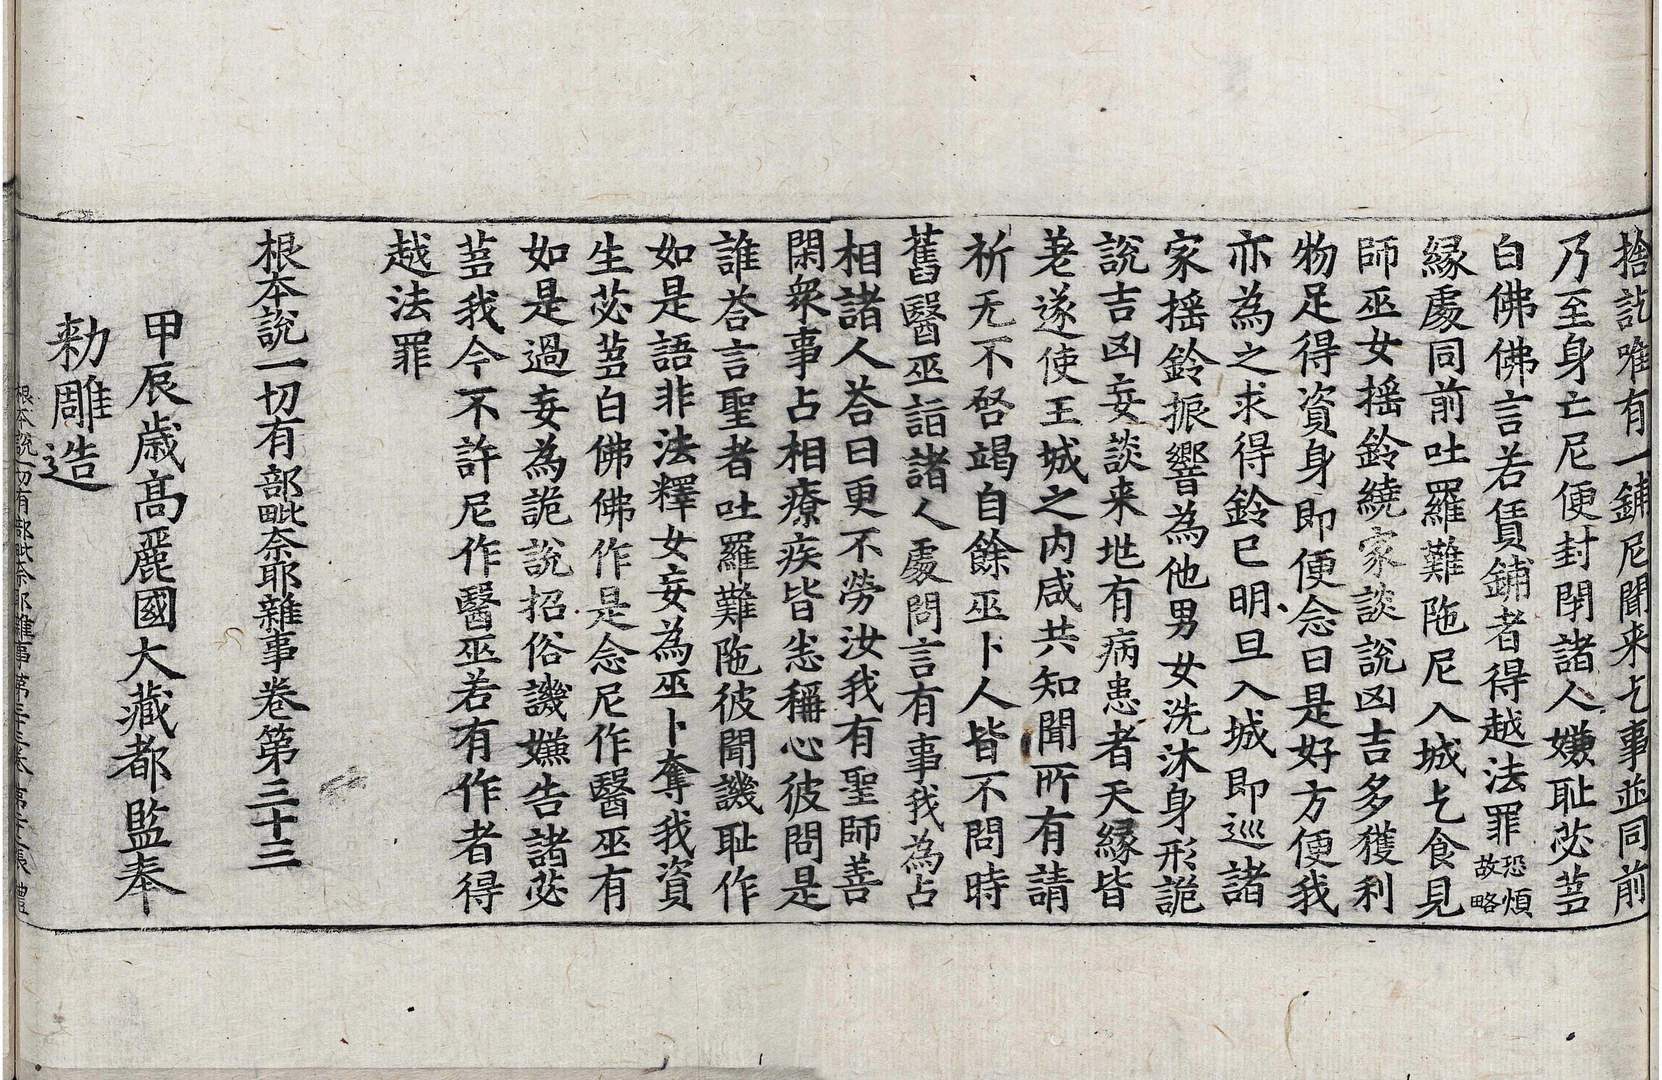 捨訖唯有一鋪尼聞来乞事並同前
乃至身亡尼便封閇諸人嫌耻苾蒭
白佛佛言若賃鋪者得越法罪恐煩故略
縁處同前吐羅難陁尼入城乞食見
師巫女揺鈴繞家談說凶吉多獲利
物足得資身即便念曰是好方便我
亦為之求得鈴已明旦入城即巡諸
家揺鈴振響為他男女洗沐身形詭
說吉凶妄談来世有病患者天縁皆
差遂使王城之内咸共知聞所有請
祈无不啓竭自餘巫卜人皆不問時
舊醫巫詣諸人處問言有事我為占
相諸人荅曰更不勞汝我有聖師善
閑衆事占相療疾皆悉稱心彼問是
誰荅言聖者吐羅難陁彼聞譏耻作
如是語非法釋女妄為巫卜奪我資
生苾蒭白佛佛作是念尼作醫巫有
如是過妄為詭說招俗譏嫌告諸苾
蒭我今不許尼作醫巫若有作者得
越法罪
根本說一切有部毗奈耶雜事卷第三十三
甲辰歳髙麗國大藏都監奉
勅雕造
根本說一切有部毗奈耶雜事第三十三卷 第 張